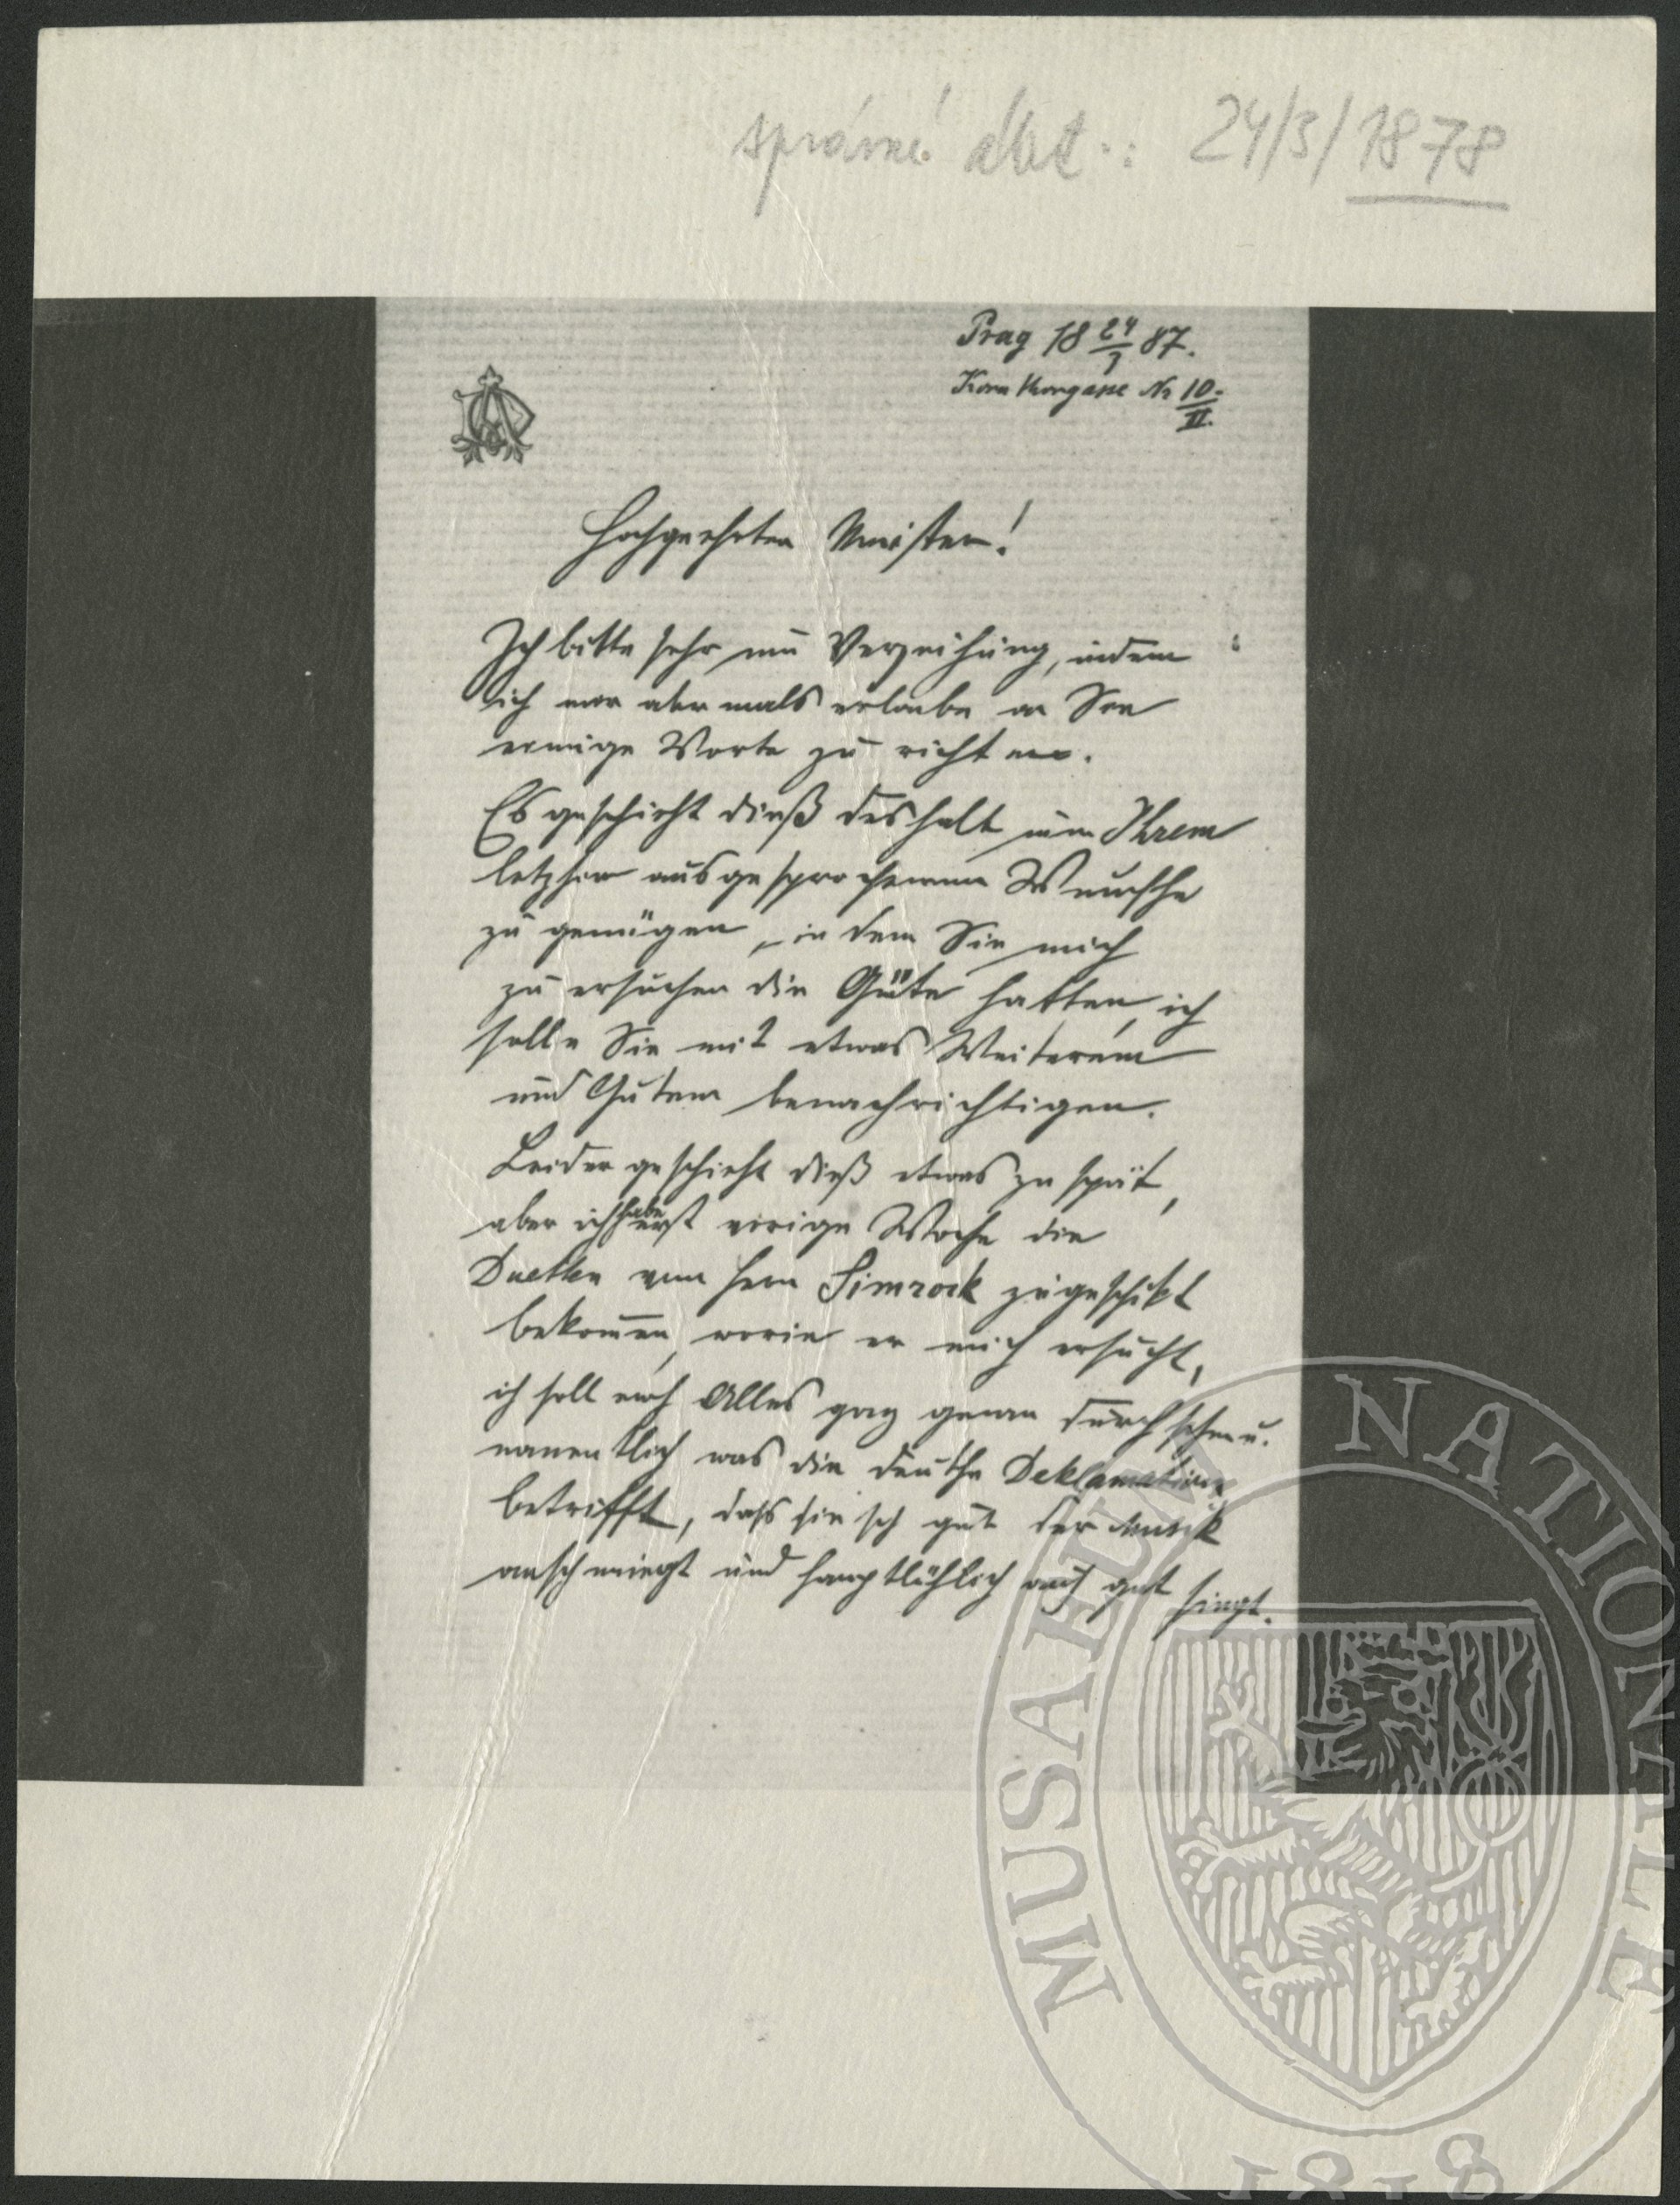 správné dat.: 24/3/1878
Prag 18 24/3 87.
Kornthorgasse Nr 10/II.
Hochgeehrter Meister!
Ich bitte sehr um Verzeihung, indem
ich mir abermals erlaube an Sie
einige Worte zu richten.
Es geschieht dieß deshalb um Ihrem
letzhin ausgesprochenem Wunsche
zu genügen, in dem Sie mich
zu ersuchen die Güte hatten, ich
solle Sie mit etwas Weiterem
und Gutem benachrichtigen.
Leider geschieht dieß etwas zu spät,
aber ich habe erst vorige Woche die
Duetten von Hern Simrock zugeschikt
bekom̄en, worin er mich ersucht,
ich soll noch Alles ganz genau durchsehen u.
namentlich was die deutsche Deklamation
betrifft, dass sie sich gut der Musik
anschmiegt und hauptsächlich auch gut singt.
MUSAEUM NATIONALE
1818